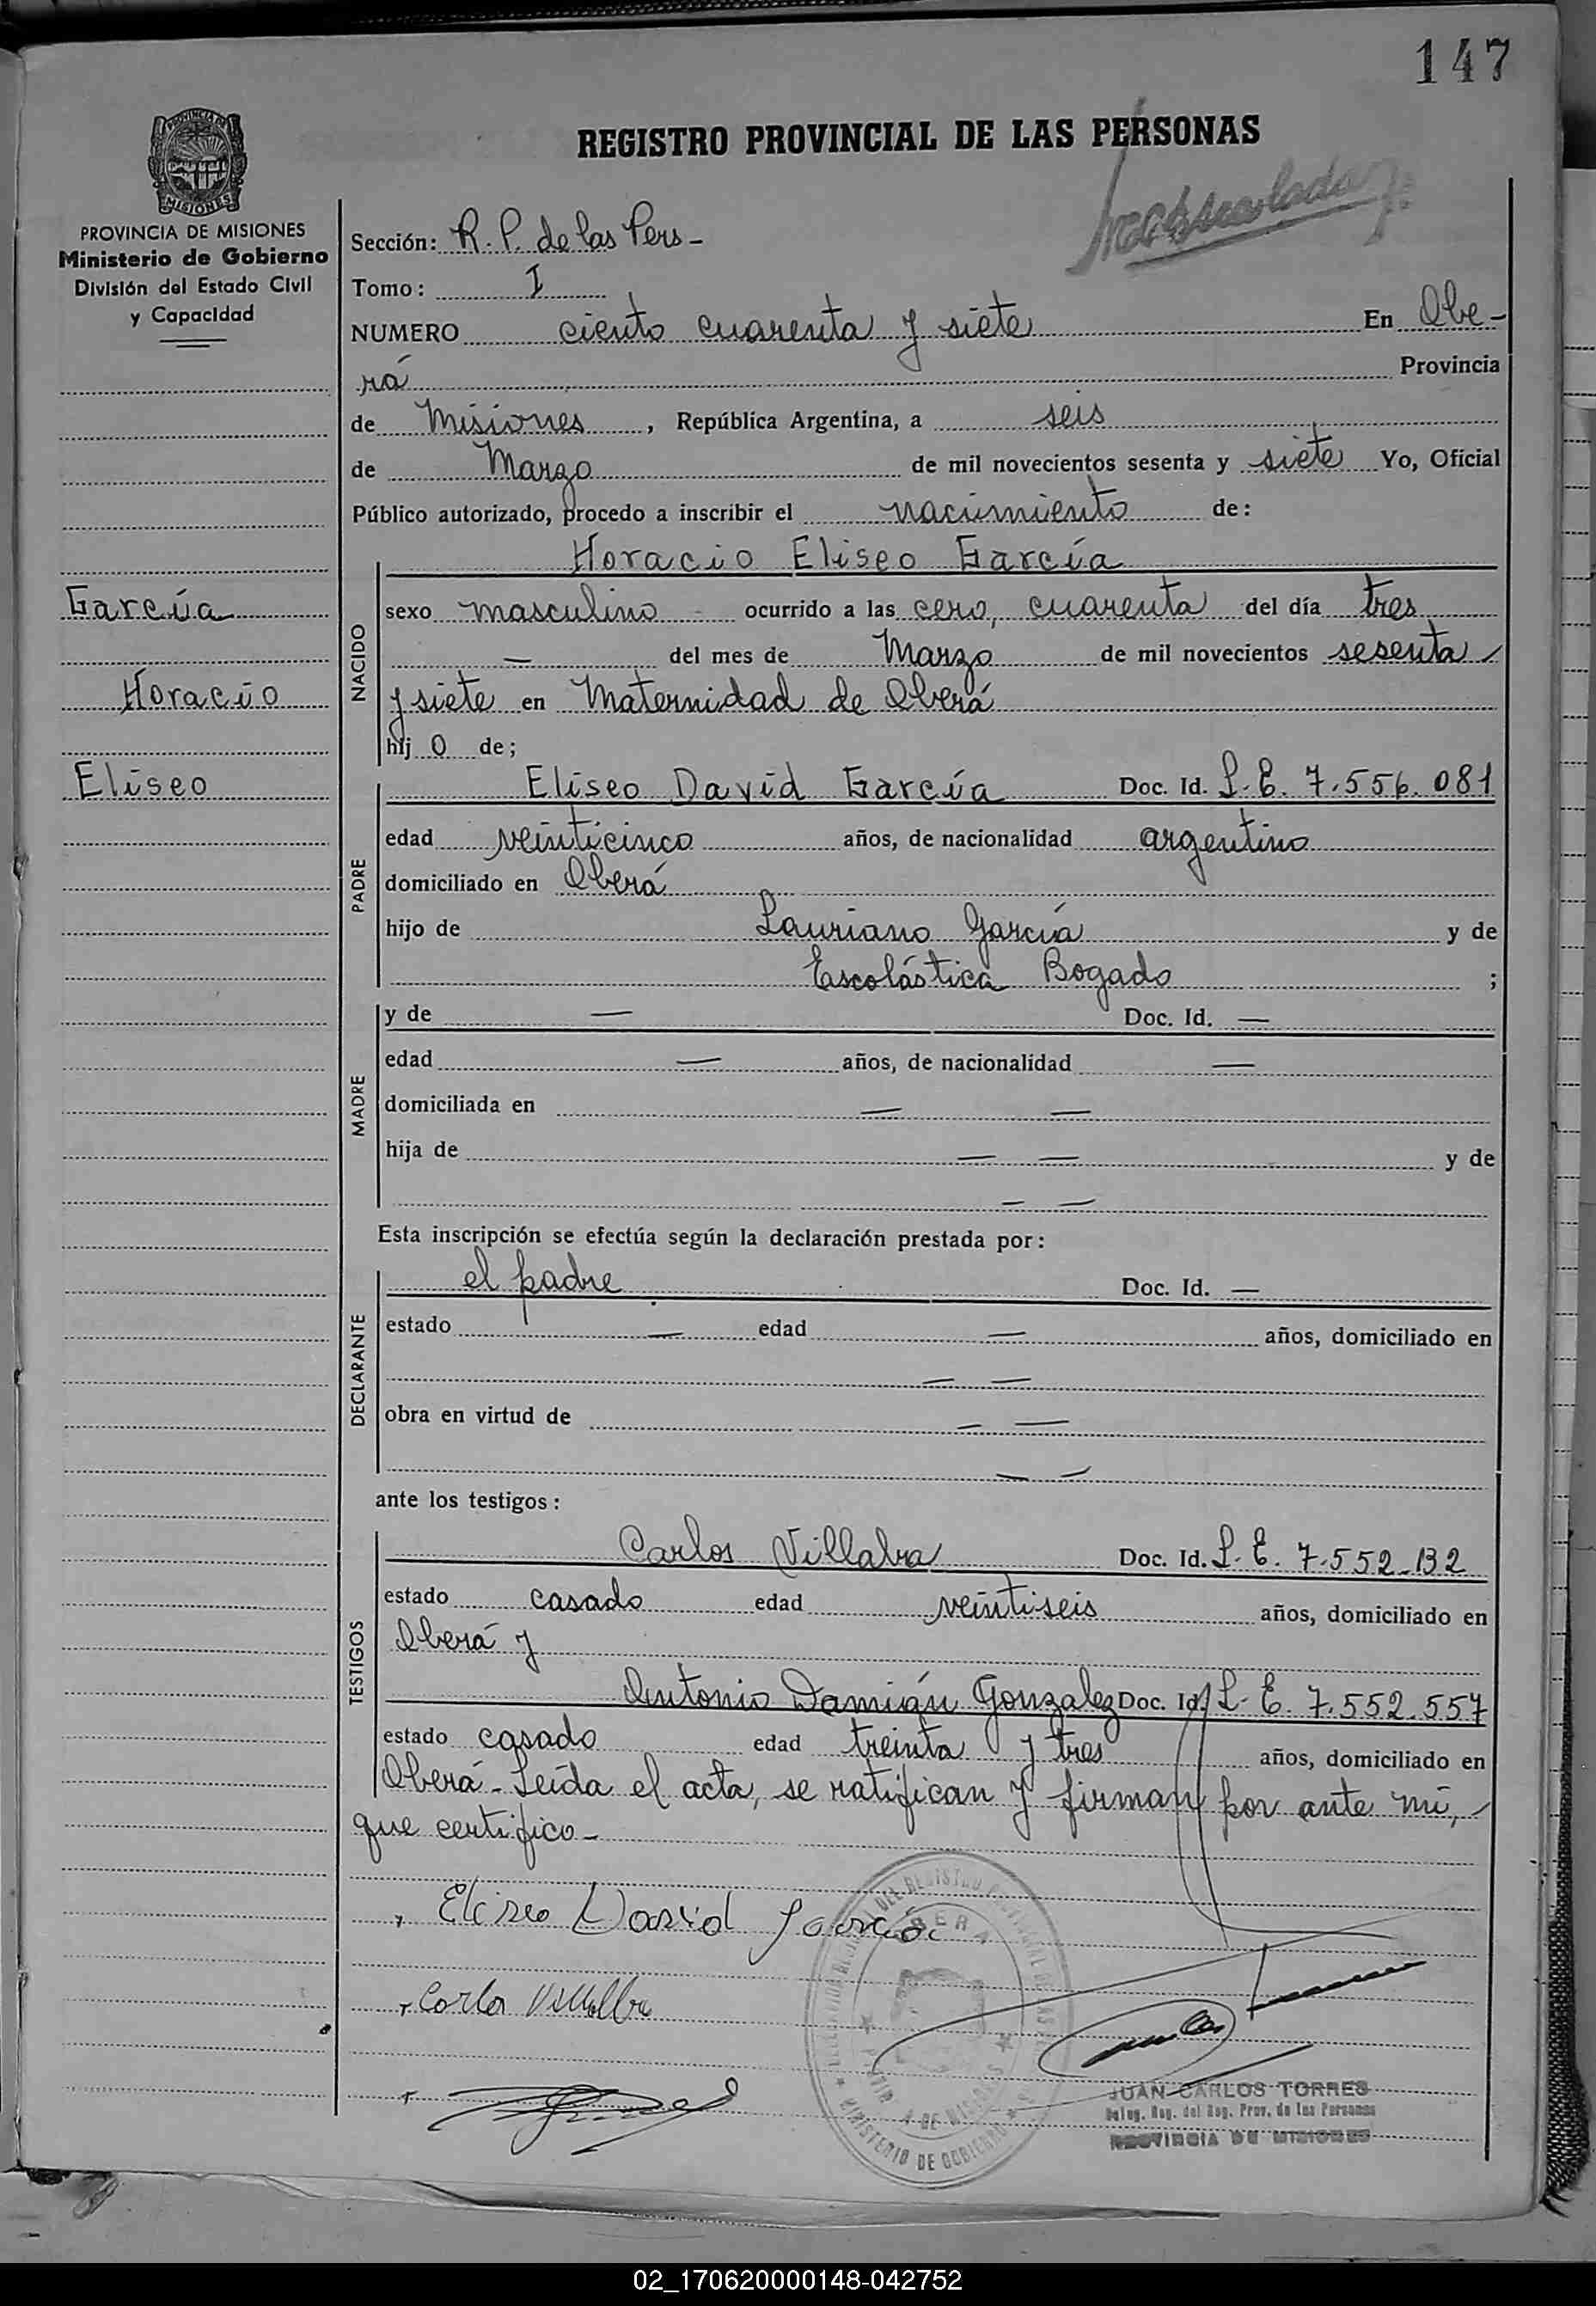 147
REGISTRO PROVINCIAL DE LAS PERSONAS
PROVINCIA DE MISIONES
Ministerio de Gobierno
División del Estado Civil
y Capacidad
García
Horacio
Eliseo
Sección: R. P. de las Pers-
Tomo: I
NUMERO ciento cuarenta y siete En Obe-
rá Provincia
de Misiones, República Argentina, a seis
de Marzo de mil novecientos sesenta y siete Yo, Oficial
Público autorizado, procedo a inscribir el nacimiento de:
Horacio Eliseo García
NACIDO
sexo masculino - ocurrido a las cero, cuarenta del día tres
— del mes de Marzo de mil novecientos sesenta
y siete en Maternidad de Oberá
hij o de;
Eliseo David García Doc. Id. L. E. 7.556.081
PADRE
edad veinticinco años, de nacionalidad argentino
domiciliado en Oberá
hijo de Lauriano García y de
Escolástica Bogado ;
y de — Doc. Id. —
MADRE
edad — años, de nacionalidad —
domiciliada en — —
hija de — — y de
— —
Esta inscripción se efectúa según la declaración prestada por:
el padre Doc. Id. —
DECLARANTE
estado — edad — años, domiciliado en
— —
obra en virtud de — —
— —
ante los testigos:
Carlos Villalva Doc. Id. L. E. 7.552.132
TESTIGOS
estado casado edad veintiseis años, domiciliado en
Oberá y
Antonio Damián Gonzalez Doc. Id. L. E. 7.552.557
estado casado edad treinta y tres años, domiciliado en
Oberá - Leída el acta, se ratifican y firman por ante mí,
que certifico -
Eliseo David García
Carlos Villalba
OBERA
MINISTERIO DE GOBIERNO
JUAN CARLOS TORRES
Deleg. Reg. del Reg. Prov. de las Personas
PROVINCIA DE MISIONES
02_170620000148-042752